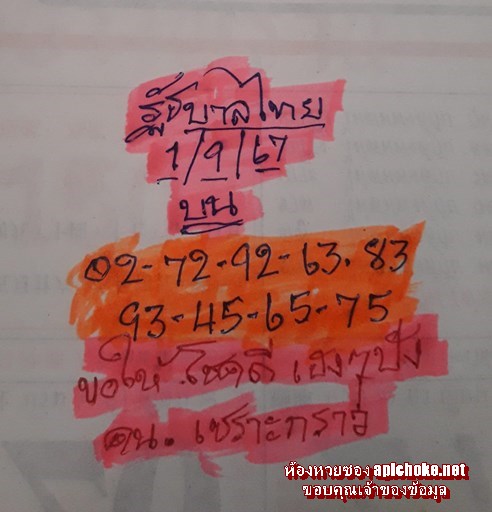 รัฐบาลไทย
1/9/67
บน
02-72-92-63.83
93-45-65-75
ขอให้.โชคดี เฮงๆปัง
คน. เซราะกราว
ห้องหวยซอง apichoke.net
ขอบคุณเจ้าของข้อมูล